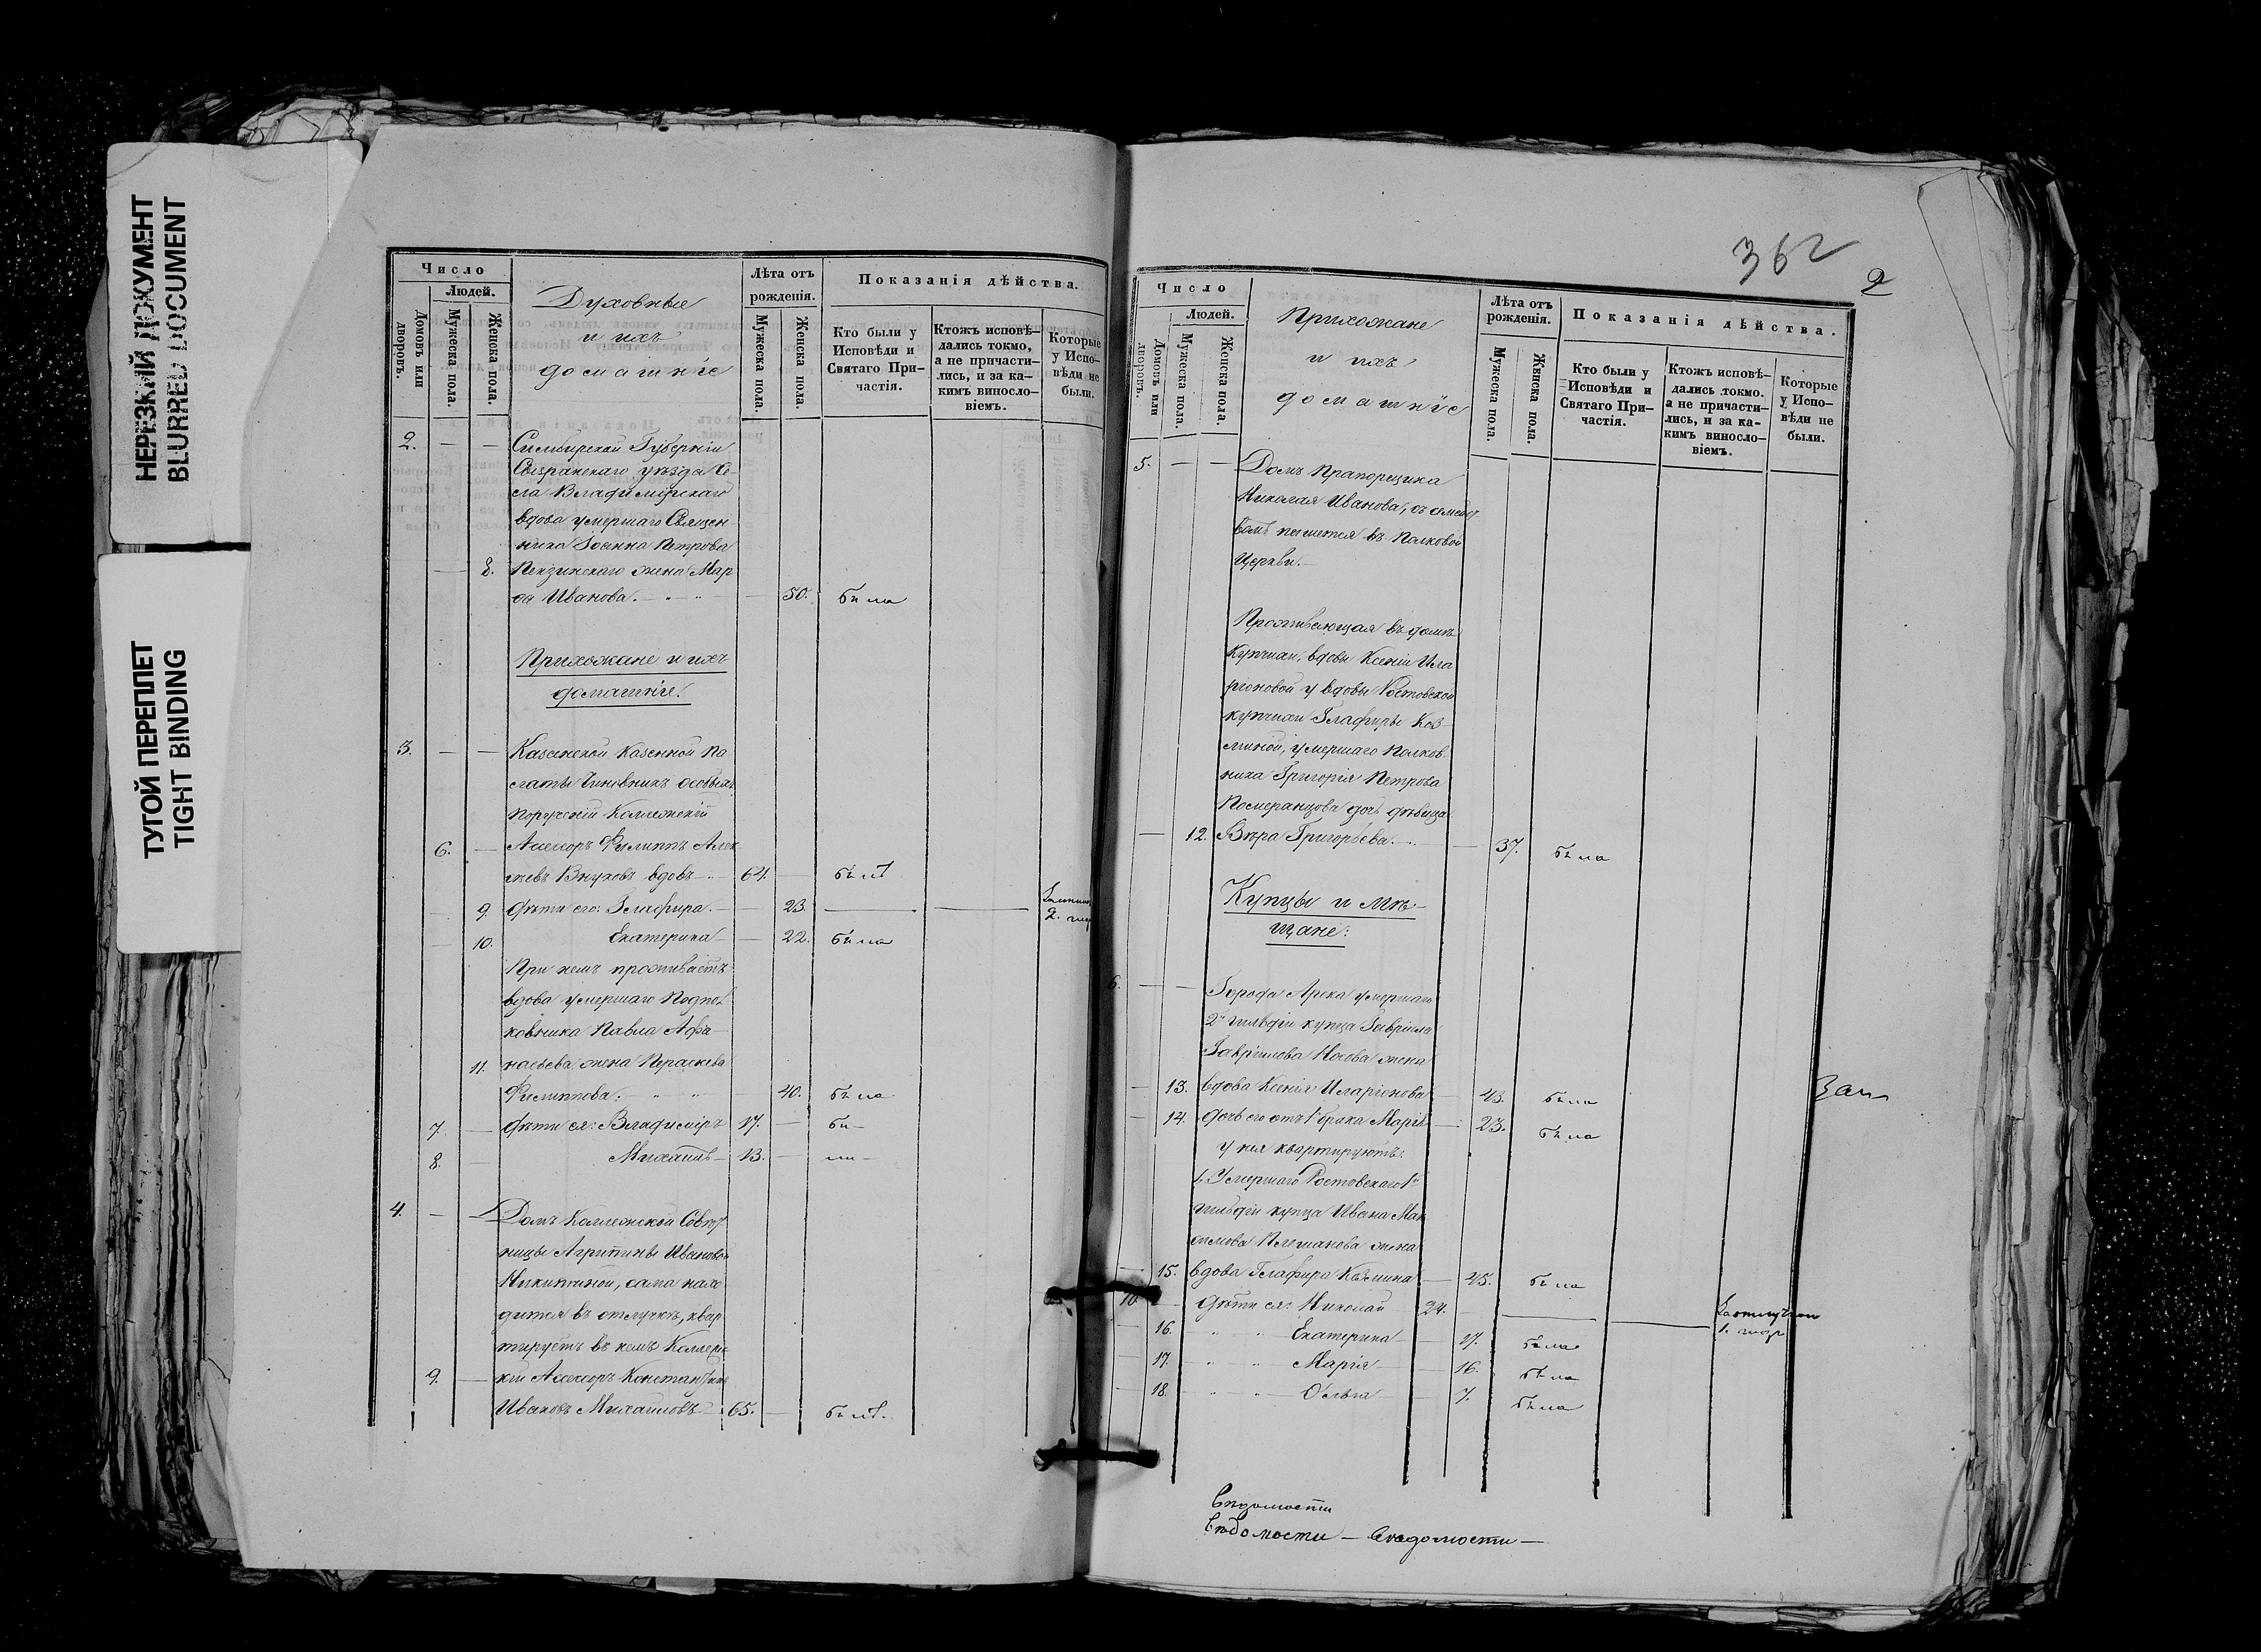 НЕРЕЗКИЙ ДОКУМЕНТ
BLURRED DOCUMENT
ТУГОЙ ПЕРЕПЛЕТ
TIGHT BINDING
Число
Людей.
Домовъ или дворовъ.
Мужеска пола.
Женска пола.
Духовные
и ихъ
домашніе
Лѣта отъ рожденія.
Мужеска пола.
Женска пола.
Показанія дѣйства.
Кто были у Исповѣди и Святаго Причастія.
Ктожъ исповѣдались токмо, а не причастились, и за какимъ винословіемъ.
Которые у Исповѣди не были.
2. — — Симбирской Губерніи
Сызранскаго уѣзда Се-
ла Владимірскаго
вдова умершаго Священ-
ника Іоанна Петрова
— 8. Пензинскаго жена Мар
ѳа Иванова. — 50. была
Прихожане и ихъ
домашніе.
3. — — Казанской Казенной Па
латы Чиновникъ особыхъ
порученій Коллежскій
6. — Ассесоръ Филиппъ Алек
сѣевъ Внуковъ вдовъ 64. — былъ
— 9. дѣти его: Глафира. — 23.
— 10. Екатерина — 22. была
При немъ проживаетъ
вдова умершаго Подпол
ковника Павла Афа-
11. насьева жена Параскева
Филиппова. — 40. была
7. — дѣти ея: Владиміръ 17. — бы-
8. — Михаилъ — 13. —
4. — — Домъ Коллежской Совѣт
ницы Агрипины Ивановой
Никитиной, сама нахо
дится въ отлучкѣ, квар
тируетъ въ немъ Коллежс
9. — кій Ассесоръ Константинъ
Ивановъ Михайловъ 65. — былъ.
362
2
Число
Людей.
Домовъ или дворовъ.
Мужеска пола.
Женска пола.
Прихожане
и ихъ
домашніе
Лѣта отъ рожденія.
Мужеска пола.
Женска пола.
Показанія дѣйства.
Кто были у Исповѣди и Святаго Причастія.
Ктожъ исповѣдались токмо. а не причастились, и за какимъ винословіемъ.
Которые у Исповѣди не были.
5. — — Домъ Прапорщика
Николая Иванова, съ семейст
вомъ пишется въ Полковой
Церкви.
Проживающая въ домѣ
Купчихи, вдовы Ксеніи Ила
ріоновой у вдовы Ростовской
купчихи Глафиры Коз
миной, умершаго Полков
ника Григорія Петрова
Померанцова дочь дѣвица
— 12. Вѣра Григорьева. — 37. была
Купцы и Мѣ-
щане:
6. — — Города Арска умершаго
2й гильдіи купца Гавріила
Гавріилова Носова жена
— 13. вдова Ксенія Иларіонова — 43. была
— 14. дочь его отъ 1 брака Марія — 23. была
у нея квартируютъ:
1. Умершаго Ростовскаго 1й
гильдіи купца Ивана Мак
симова Плешанова жена
— 15. вдова Глафира Козмина — 45. была
10. — дѣти ея: Николай 24. — За отлучкою
1. годъ
— 16. Екатерина — 17. была
— 17. Марія — 16. была
— 18. Ольга — 7. была
Зап
Вѣдомости
Вѣдомости — Вѣдомости —